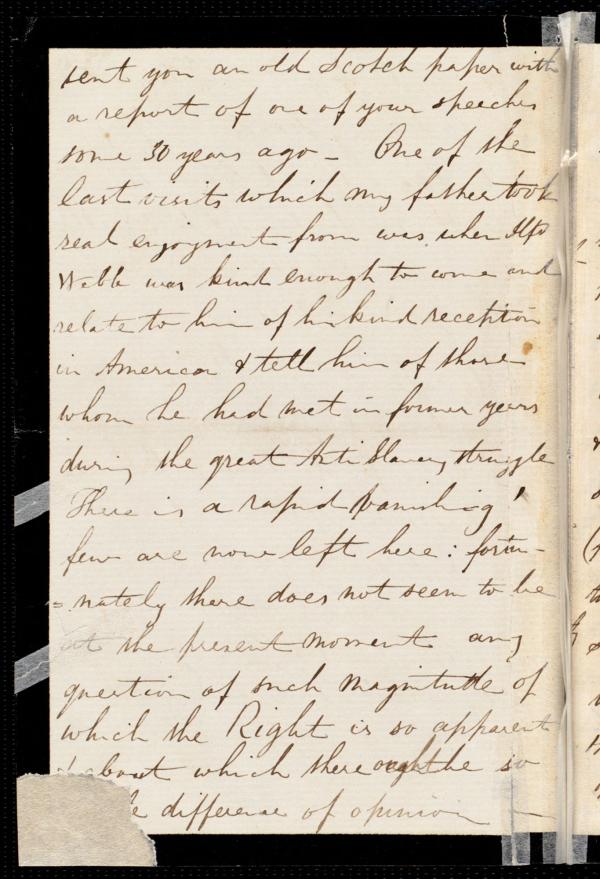 sent you an old Scotch paper with
a report of one of your speeches
some 30 years ago - One of the
last visits which my father took
real enjoyment from was when Alfd
Webb was kind enough to come and
relate to him of his kind reception
in America & tell him of those
whom he had met in former years
during the great Anti Slavery struggle
There is a rapid vanishing!
few are now left here: fortu-
=nately there does not seem to be
at the present moment any
question of such magnitude of
which the Right is so apparent
& about which there ought be so
difference of opinion -